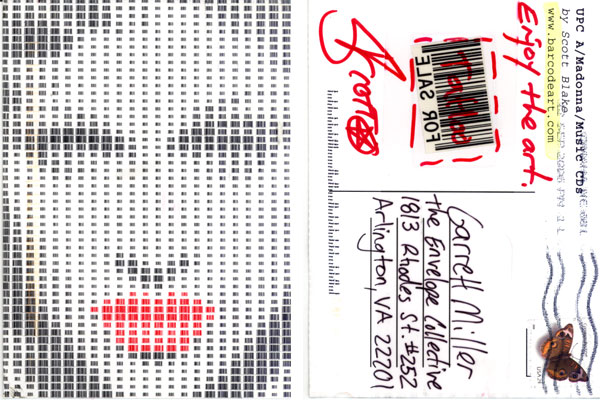 UPC A/Madonna/Music CDs
by Scott Blake
www.barcodeart.com
Enjoy the art.
FOR SALE
Scott
Garrett Miller
the Envelope Collective
1813 Rhodes St. #252
Arlington, VA 22201